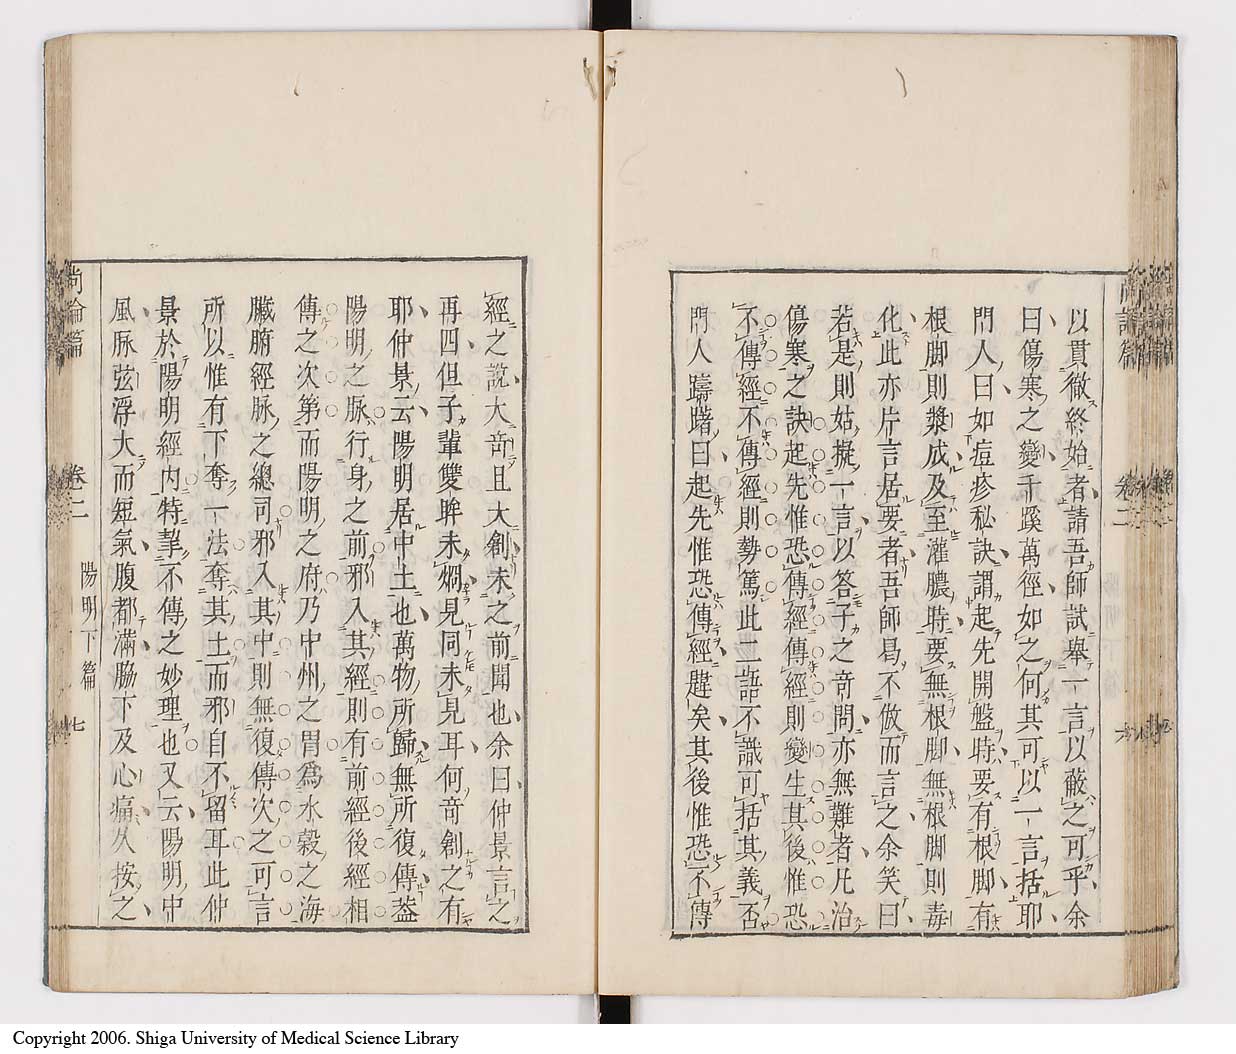 以貫徹終始者請吾師試舉一言以蔽之可乎余
曰傷寒之變千蹊萬徑如之何其可以一言括耶
門人曰如痘疹秘訣謂起先開盤時要有根脚有
根脚則漿成及至灌膿時要無根脚無根脚則毒
化此亦片言居要者吾師曷不倣而言之余笑曰
若是則姑擬一言以答子之奇問亦無難者凡治
傷寒之訣起先惟恐傳經傳經則變生其後惟恐
不傳經不傳經則勢篤此二語不識可括其義否
門人躊躇曰起先惟恐傳經韙矣其後惟恐不傳
經之說大奇且大創未之前聞也余曰仲景言之
再四但子輩雙眸未烱見同未見耳何奇創之有
耶仲景云陽明居中土也萬物所歸無所復傳葢
陽明之脉行身之前邪入其經則有前經後經相
傳之次第而陽明之府乃中州之胃爲水穀之海
臟腑經脉之總司邪入其中則無復傳次之可言
所以惟有下奪一法奪其土而邪自不留耳此仲
景於陽明經內特挈不傳之妙理也又云陽明中
風脉弦浮大而短氣腹都滿脇下及心痛久按之
尚論篇
卷二
陽明下篇
七